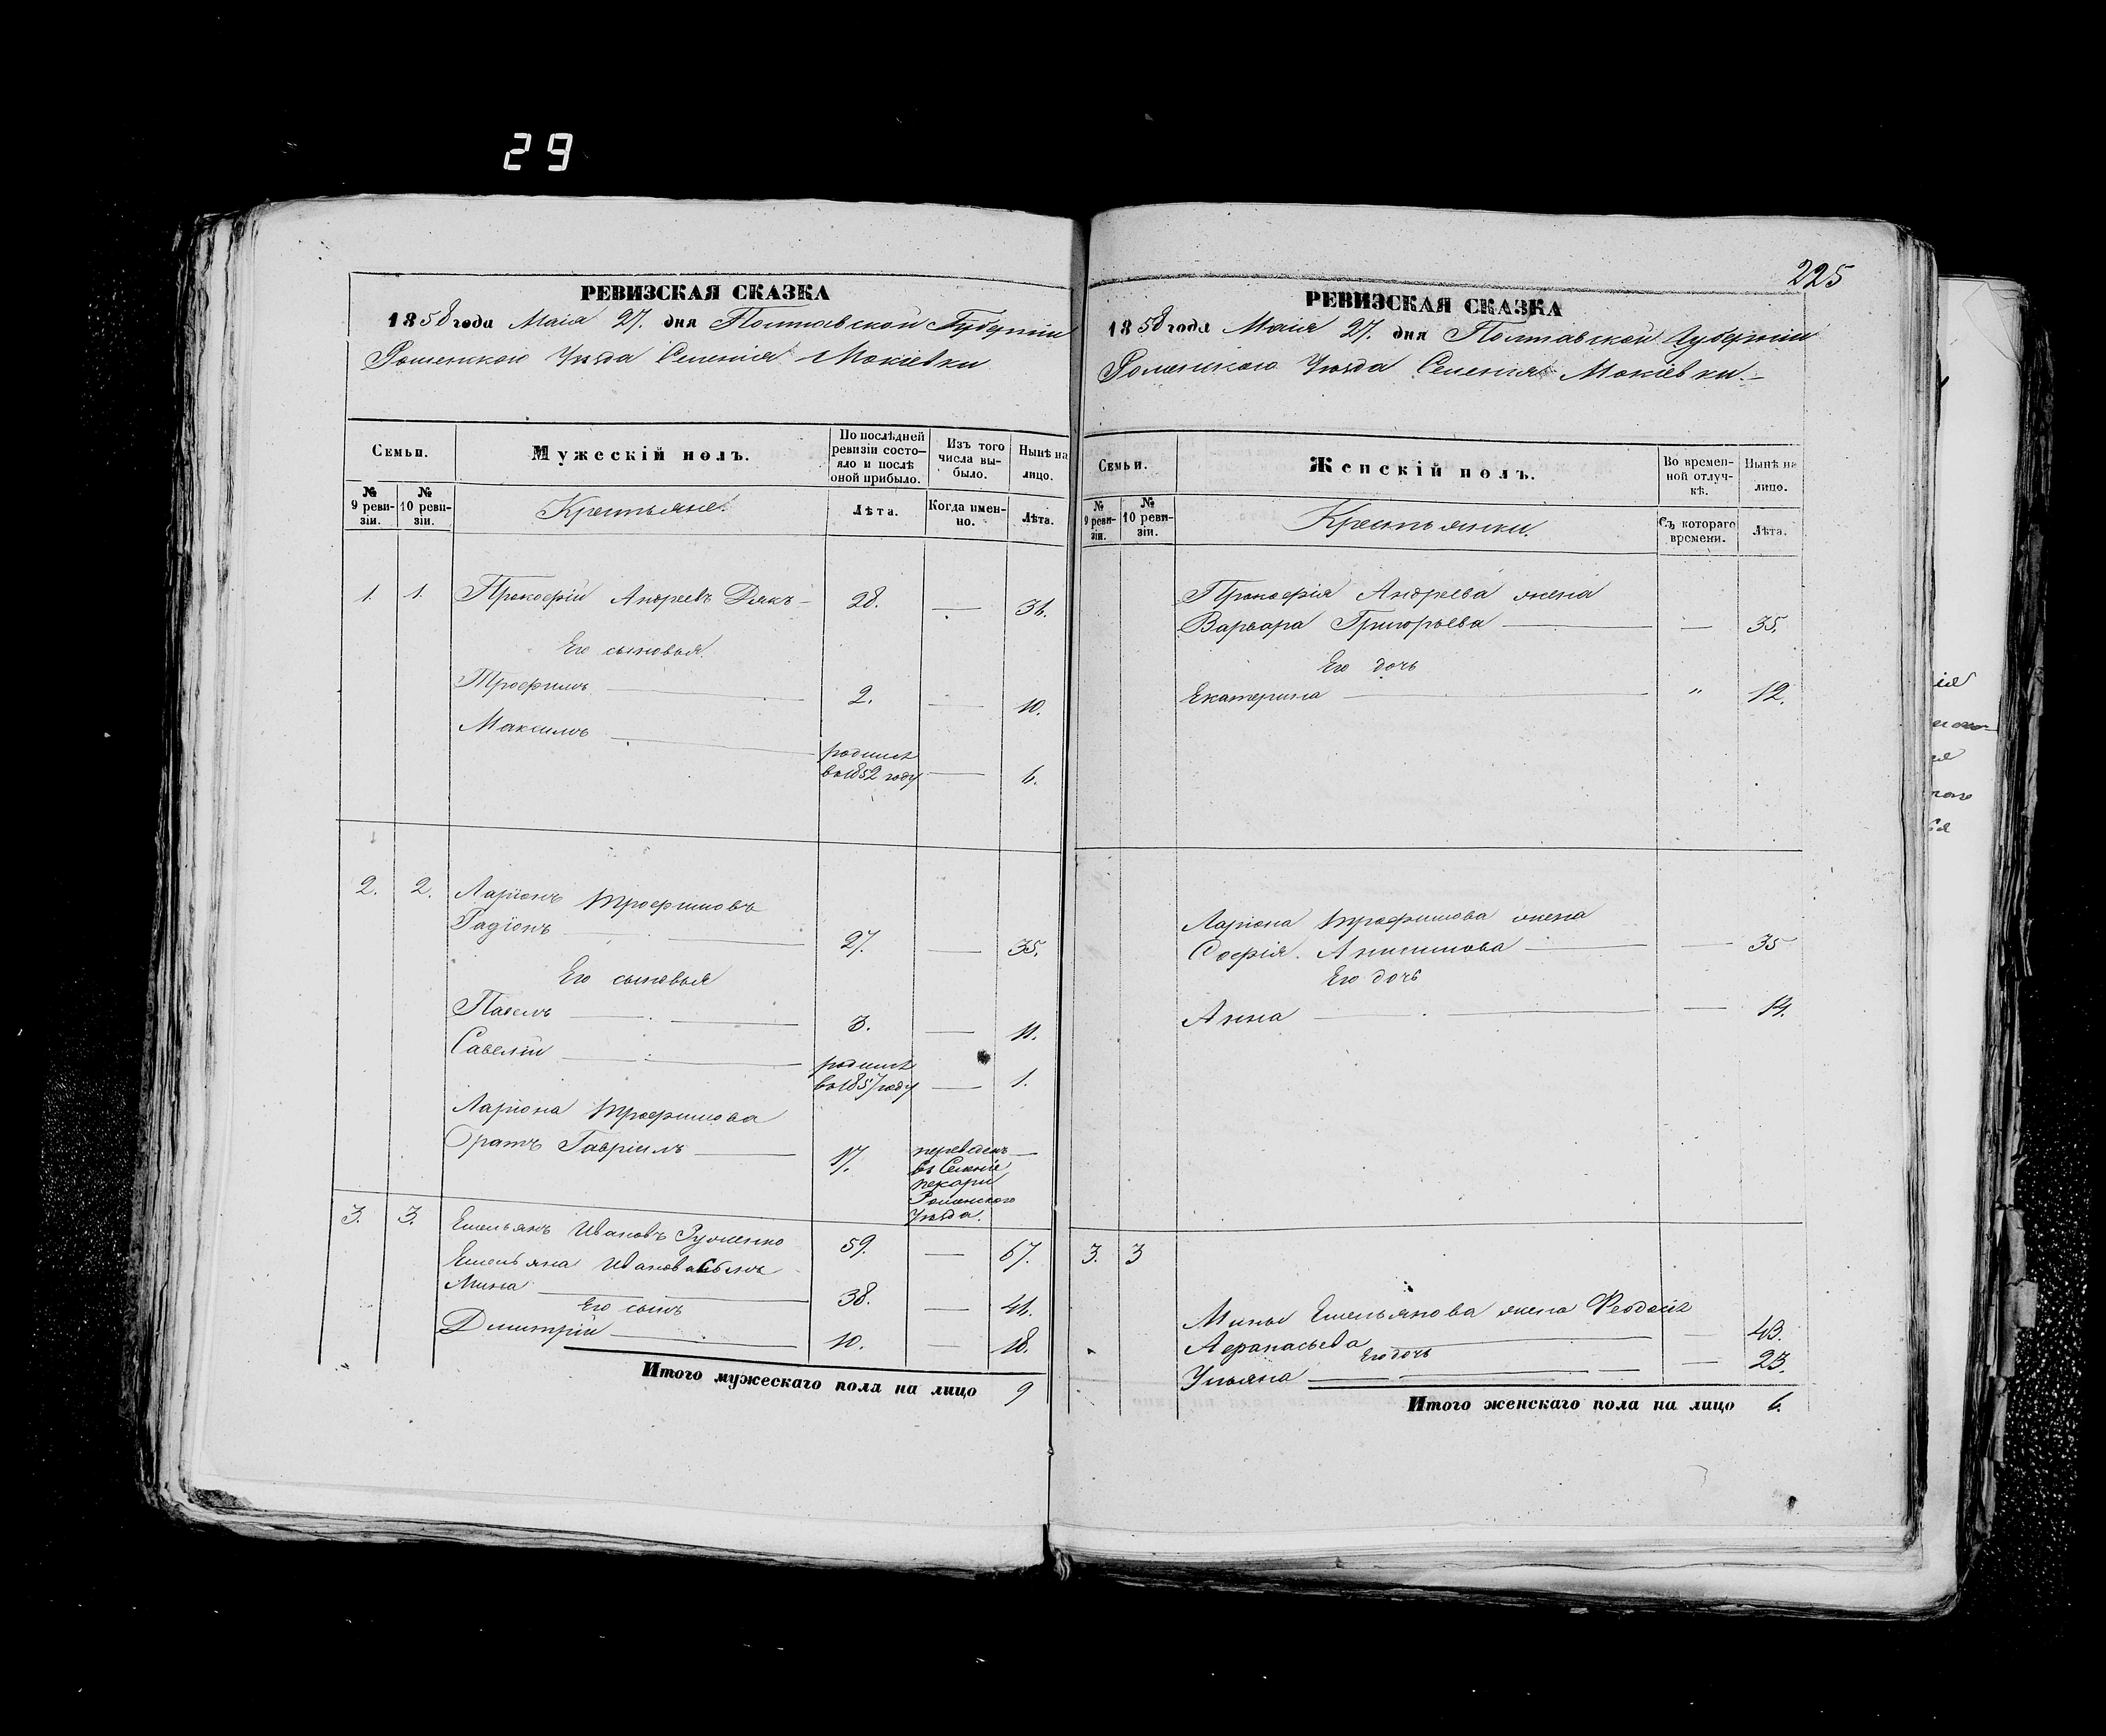 29
РЕВИЗСКАЯ СКАЗКА
1858 года Маія 27. дня Полтавской Губерніи
Роменского Уѣзда Селенія Мокіевки
Семьи.
Мужескій полъ.
По послѣдней ревизіи состояло и послѣ оной прибыло.
Изъ того числа выбыло.
Нынѣ на лицо.
№ 9 ревизіи.
№ 10 ревизіи.
Крестьяне.
Лѣта.
Когда именно.
Лѣта.
1. 1. Прокофій Андреевъ Дякъ 28. — 36.
Его сыновья
Трофимъ 2. — 10.
Максимъ
родился
въ 1852 году — 6.
2. 2. Ларіонъ Трофимовъ
27. — 35.
Его сыновья
Павелъ 3. — 11.
Савелій
родился
въ 1857 году — 1.
Ларіона Трофимова
братъ Гавріилъ 17. переведенъ —
въ Селеніе
Пекари
Роменского
Уѣзда.
3. 3. Емельянъ Ивановъ 59. — 67.
Емельяна Иванова сынъ
Мина 38. — 46.
Его сынъ
Димитрій 10. — 18.
Итого мужескаго пола на лицо 9
225
РЕВИЗСКАЯ СКАЗКА
1858 года Маія 27. дня Полтавской Губерніи
Роменского Уѣзда Селенія Мокіевки.
Семьи.
Женскій полъ.
Во временной отлучкѣ.
Нынѣ на лицо.
№ 9 ревизіи.
№ 10 ревизіи.
Крестьянки.
Съ котораго времени.
Лѣта.
Прокофія Андреева жена
Варвара Григорьева — 35.
Его дочь
Екатерина " 12.
Ларіона Трофимова жена
Софія — 35
Его дочь
Анна — 14.
3. 3
Мины Емельянова жена Феодосія
Афанасьева — 43.
Его дочь
Ульяна — 23.
Итого женскаго пола на лицо 6.